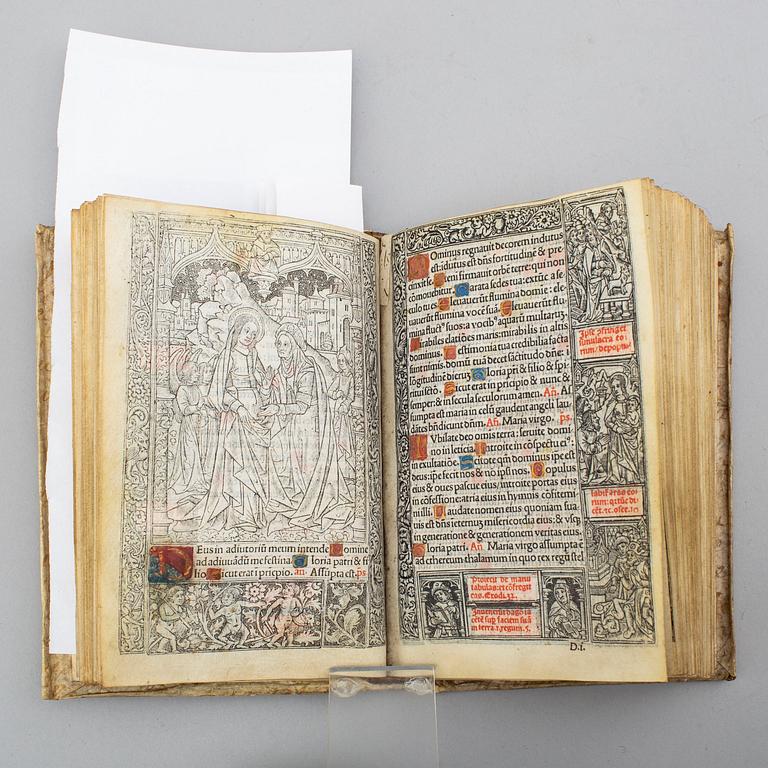 Eus in adiutoriũ meum intende Domine
ad adiuuãdũ me festina Gloria patri & fi
lio Sicut erat i pricpio. an. Assũpta est. ps̃
Ominus regnauit decorem indutus
est: idutus est dñs fortitudinẽ & pre
cinxit se. Eteni firmauit orbẽ terre: qui non
cõmouebitur. Parata sedes tua: extũc a se
culo tu es. Eleuauerũt flumina domine: ele
uauerũt flumina vocẽ suã. Eleuauerũt
flumina fluct⁹ suos: a vocib⁹ aquarũ multarũ
Mirabiles elatiões maris: mirabilis in altis
dominus. Testimonia tua credibilia facta
sunt nimis. domũ tuã decet sãctitudo dñe.
i lõgitudinẽ dierũ Gloria pri & filio & spi
ritui sctõ. Sicut erat in pricipio & nunc &
semper: & in secula seculorum amen. Añ. A
sumpta est maria in celũ gaudent angeli lau
dates bñdicunt dñm. Añ. Maria virgo. ps̃.
Vbilate deo omis terra: seruite domi
no in leticia. Introite in cõspectu ei⁹:
in exultatiõe. Scitote qm̃ dominus ipse est
deus: ipse fecit nos & nõ ipsi nos. Populus
eius & oues pascue eius: introite portas eius
in cõfessione: atria eius in hymnis cõfitemi
ni illi. Laudate nomen eius quoniam sua
uis est dñs ieternũ misericordia eius: & vsq
in generatione & generationem veritas eius.
Gloria patri. Añ Maria virgo assumpta ẽ
ad ethereum thalamum in quo rex regũ stel
Ipse cõfringet
simulacra eo
rum / depopu
labit aras eo
rum: qr nũc di
cẽt. &c. osee. 10
Proiecit de manu
tabulas: et cõfregit
eas. Exodi. 32.
Inuenerũt dagõ ia
cẽtẽ sup faciem suã
in terra. 1. regum. 5.
D.i.